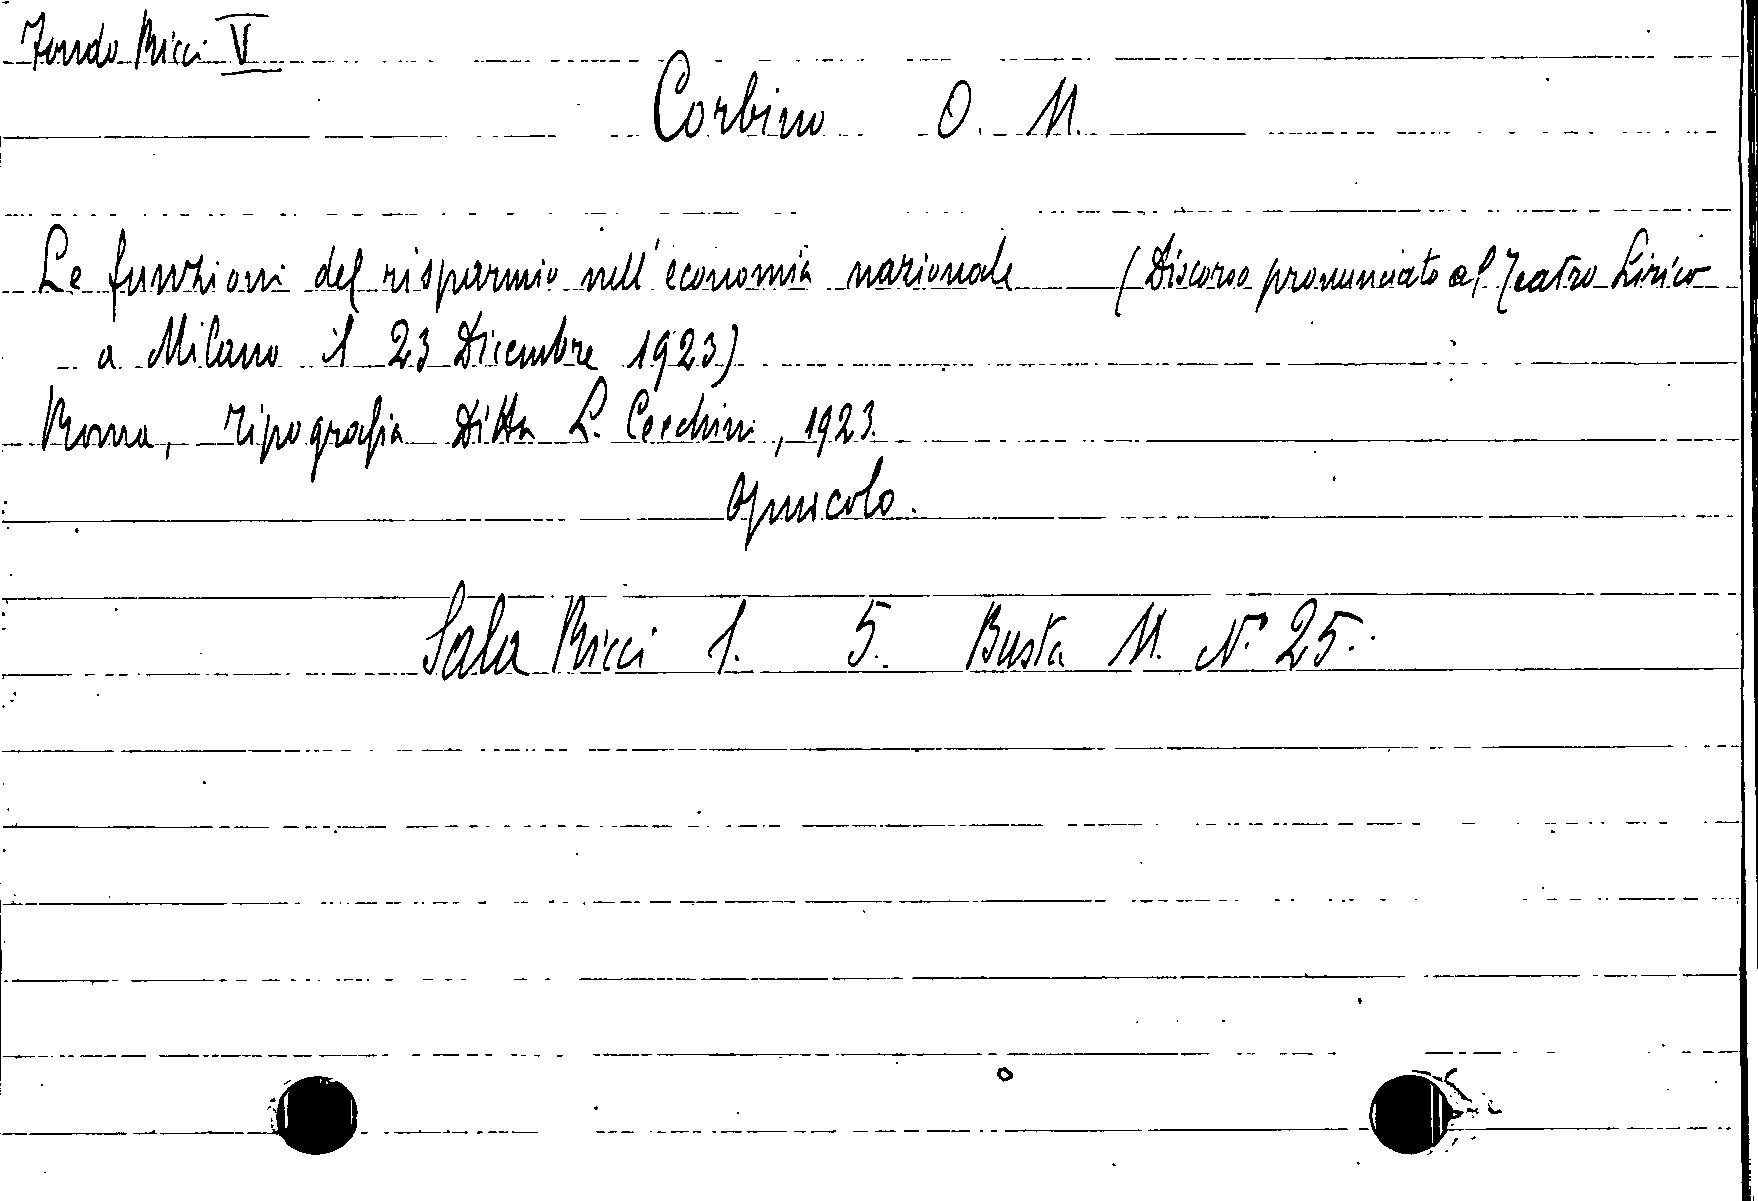 Fondo Ricci V
Corbino O. M.
Le funzioni del risparmio nell'economia nazionale (Discorso pronunciato al Teatro Lirico
a Milano il 23 Dicembre 1923)
Roma, Tipografia Ditta L. Cecchini, 1923.
Opuscolo.
Sala Ricci 1. 5. Busta M. N. 25.